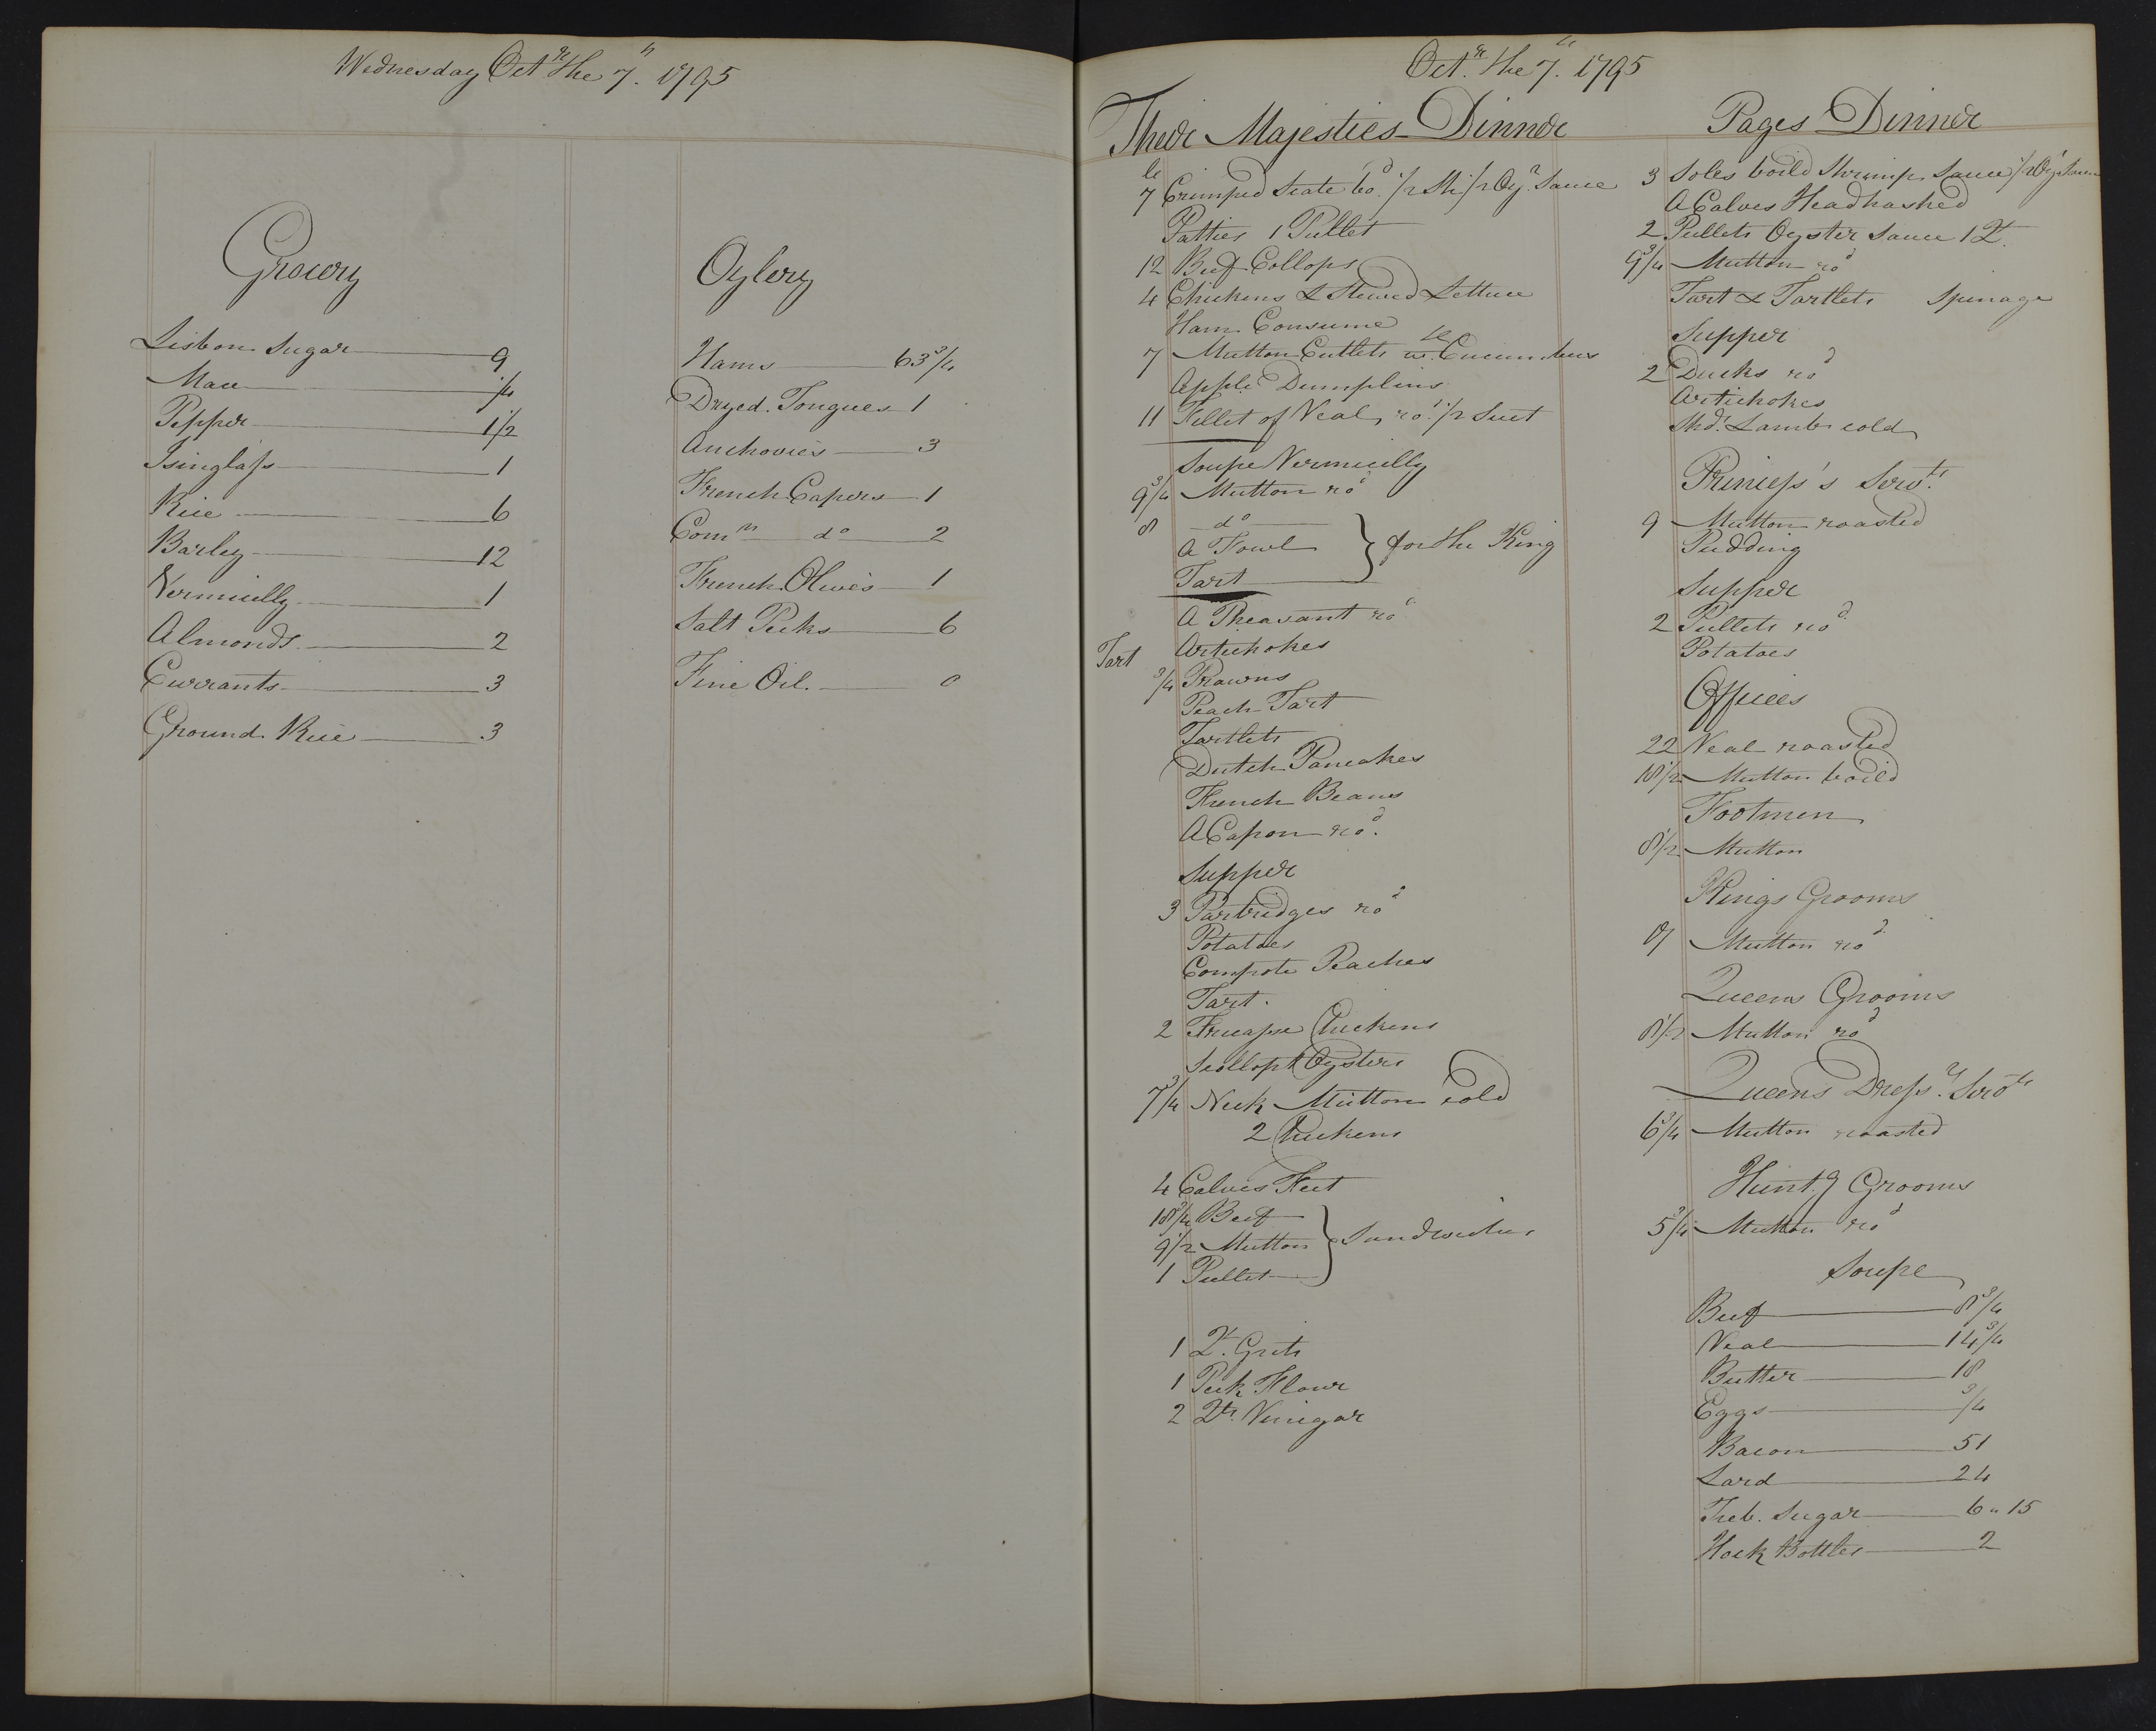 Wednesday Octr the 7th 1795
Grocery
Lisbon Sugar 9
Mace 1/4
Pepper 1 1/2
Isinglass 1
Rice 6
Barley 12
Vermicelly 1
Almonds 2
Currants 3
Ground Rice 3
Oylery
Hams 63 3/4
Dryed Tongues 1
Anchovies 3
French Capers 1
Comn do 2
French Olives 1
Salt Pecks 6
Fine Oil 0
Octr the 7th 1795
Their Majesties Dinner
le
7 Crimped Scate bod 1/2 Sh 1/2 Oyr Sauce
Patties 1 Pullet
12 Beef Collops
4 Chickens & Stewed Lettuce
Ham Consume
7 Mutton Cutlets w. Cucumbers
Apple Dumplins
11 Fillet of Veal rod 1/2 Suet
Soupe Vermicelly
9 3/4 Mutton rod
8 do
A Fowl } for the King
Tart
A Pheasant rod
Tart Artichokes
3/4 Prawns
Peach Tart
Tartlets
Dutch Pancakes
French Beans
A Capon rod
Supper
3 Partridges rod
Potatoes
Compote Peaches
Tart.
2 Fricasse Chickens
Scollopt Oysters
7 3/4 Neck Mutton cold
2 Chickens
4 Calves Feet
18 3/4 Beef
9 1/2 Mutton } Sandwiches
1 Pullet
1 Qt. Grits
1 Peck Flour
2 Qts Vinigar
Pages Dinner
3 Soles boild Shrimp Sauce 1/2 Oyr Sauce
A Calves Head hashed
2 Pullets Oyster Sauce 1 Qt.
9 3/4 Mutton rod
Tart & Tartlets Spinage
Supper
2 Ducks rod
Artichokes
Shdr Lamb cold
Princess's Servts
9 Mutton roasted
Pudding
Supper
2 Pullets rod
Potatoes
Offices
22 Veal roasted
18 1/2 Mutton boild
Footmen
8 1/2 Mutton
Kings Grooms
Mutton rod
Queens Grooms
8 1/2 Mutton rod
Queens Dressrs Servts
6 3/4 Mutton roasted
Huntg Grooms
5 3/4 Mutton rod
Soupe
Beef 8 3/4
Veal 14 3/4
Butter 18
Eggs 3/4
Bacon 51
Lard 24
Treb. Sugar 6 " 15
Hock Bottles 2